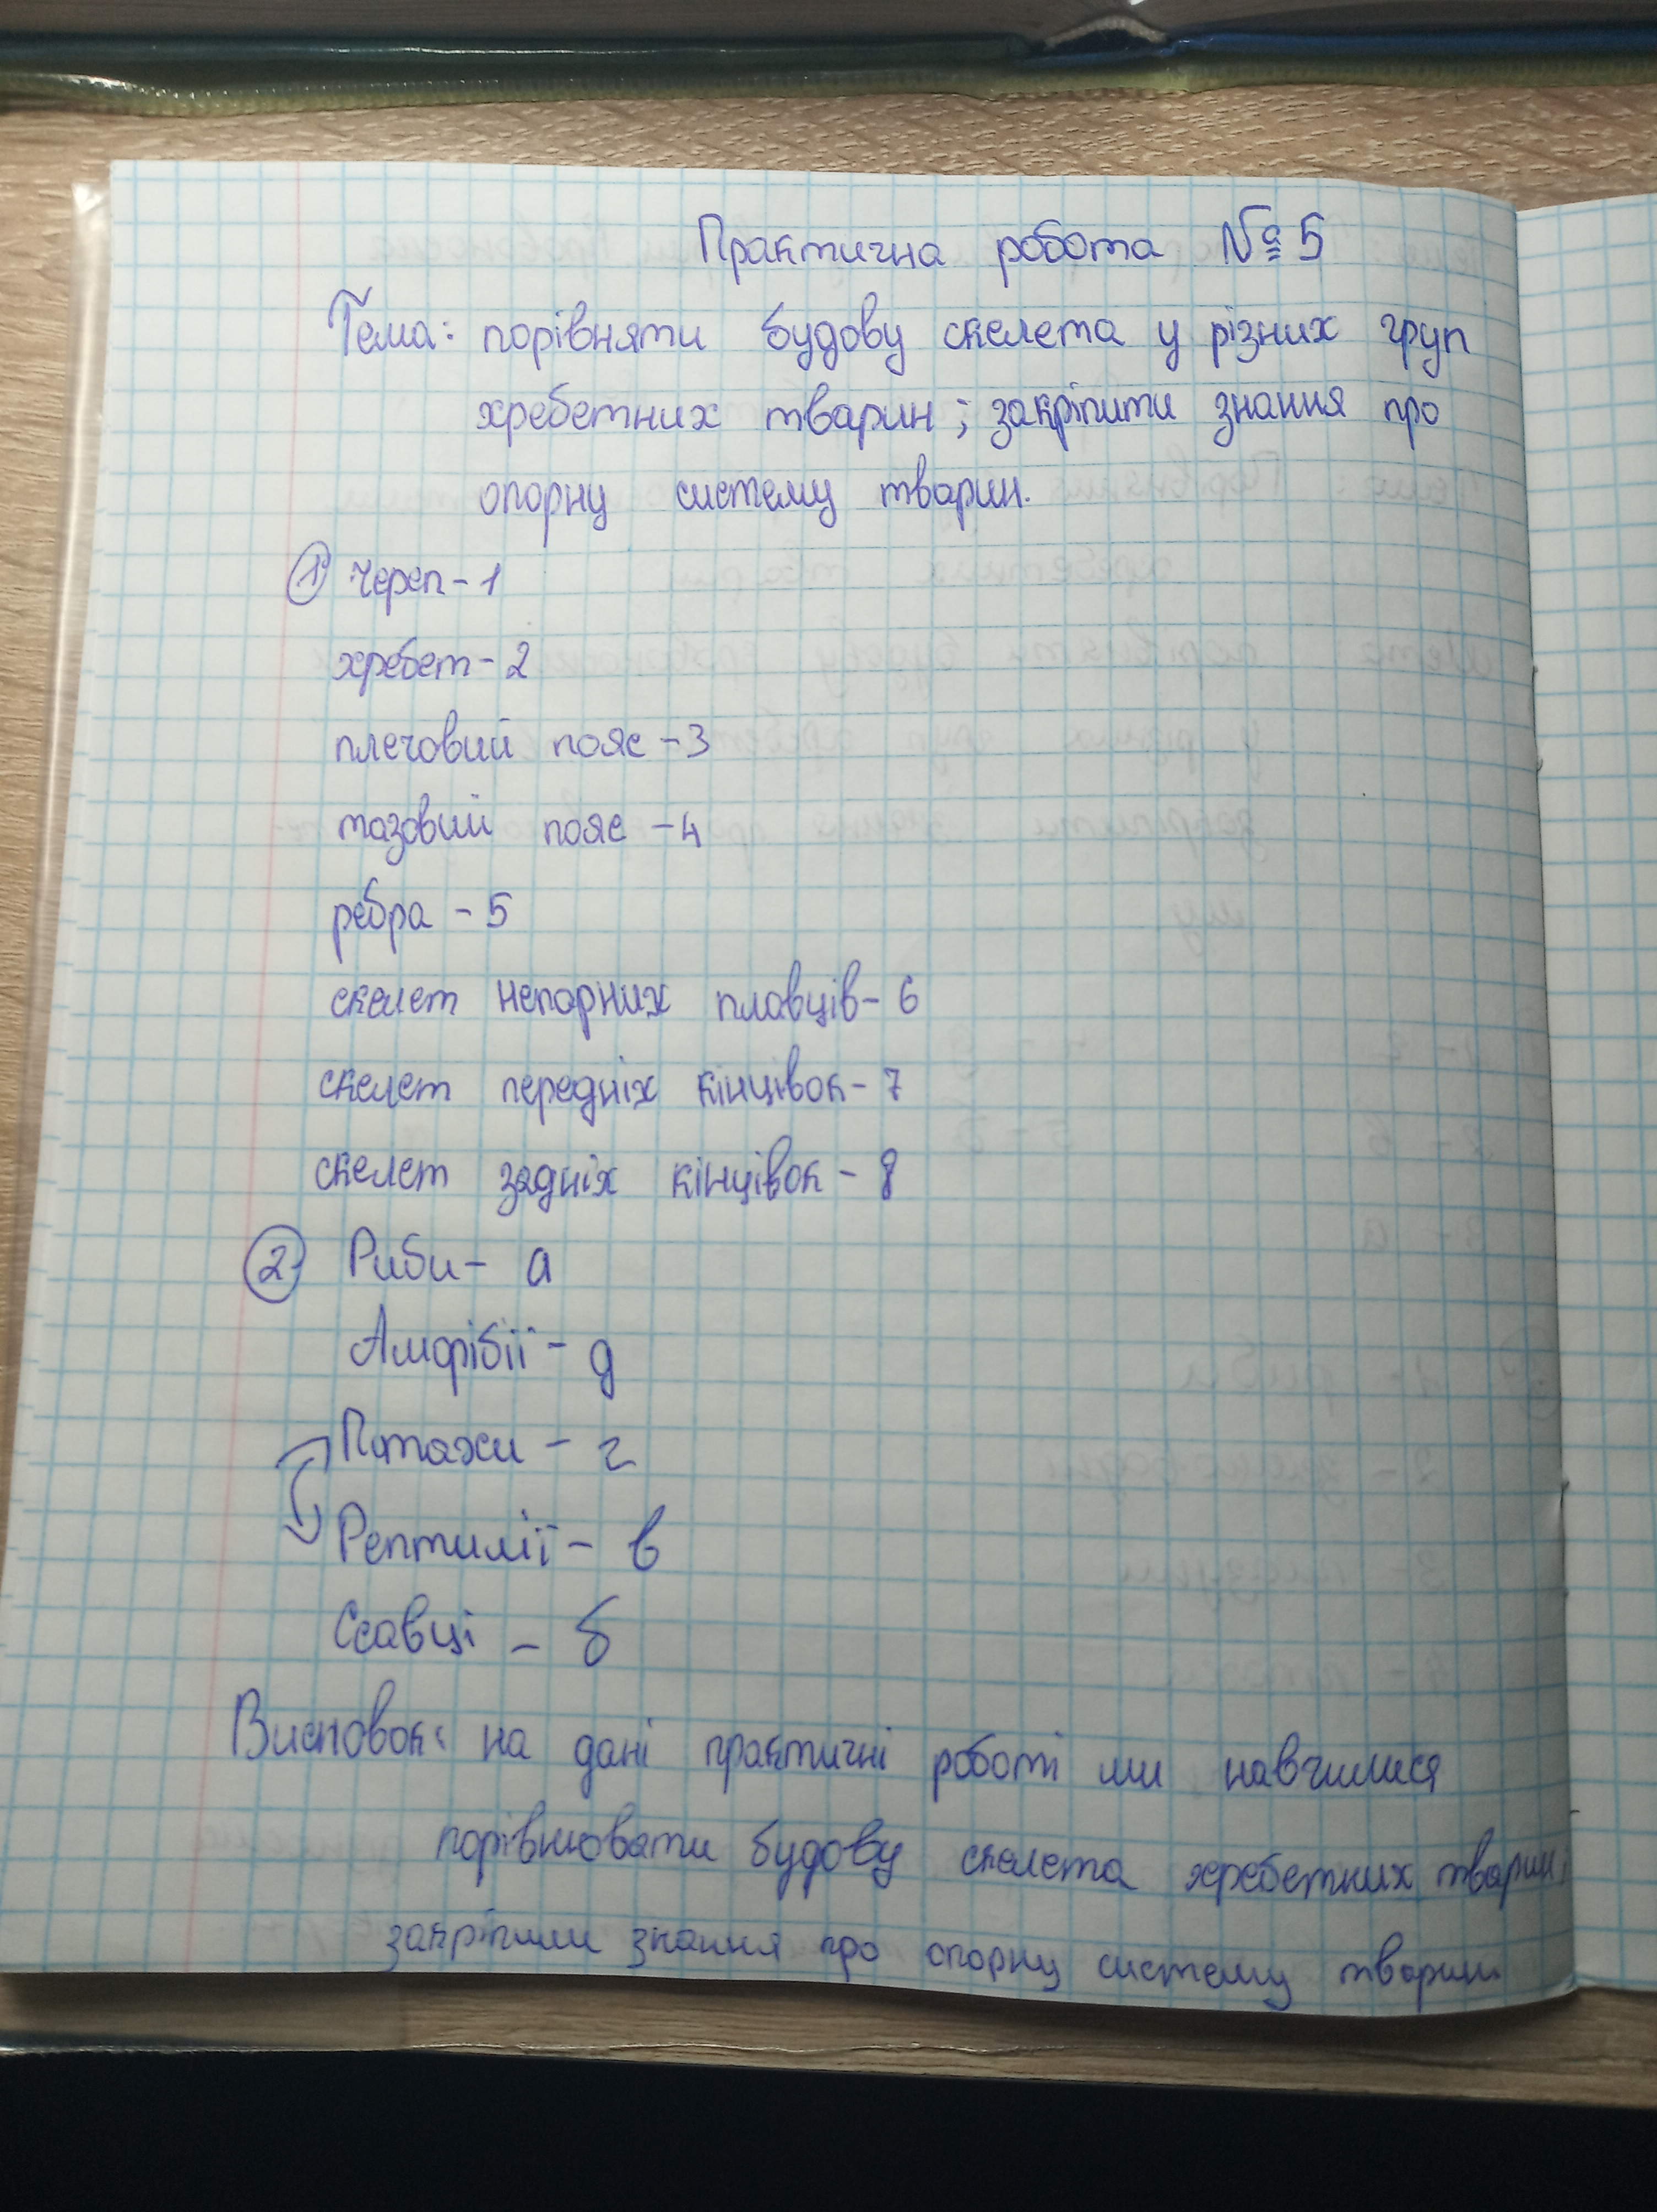 Практична робота № 5
Тема: порівняти будову скелета у різних груп
хребетних тварин; закріпити знання про
опорну систему тварин.
① Череп - 1
хребет - 2
плечовий пояс - 3
тазовий пояс - 4
ребра - 5
скелет непарних плавців - 6
скелет передніх кінцівок - 7
скелет задніх кінцівок - 8
② Риби - а
Амфібії - д
Птахи - г
Рептилії - в
Ссавці - б
Висновок: на дані практичні роботі ми навчилися
порівнювати будову скелета хребетних тварин,
закріпили знання про опорну систему тварин.